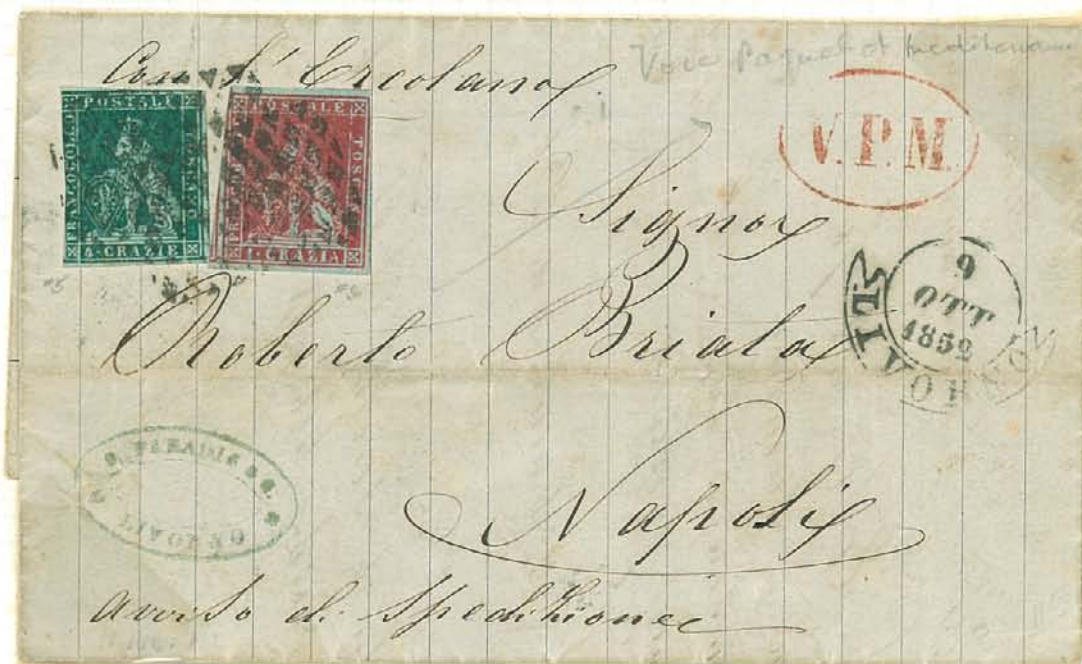 Con l'Ercolano
Voie Paquebot Mediterranée
V.P.M.
FRANCOBOLLO POSTALE TOSCANO
4 CRAZIE
FRANCOBOLLO POSTALE TOSCANO
1 CRAZIA
Signor
Roberto Briata
Napoli
LIVORNO
9
OTT
1852
PARADIS & C.
LIVORNO
avviso di Spedizione